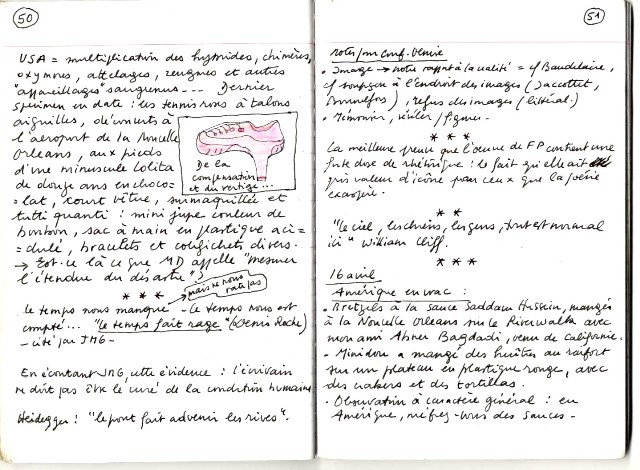 50
USA = multiplication des hybrides, chimères,
oxymores, attelages, zeugmes et autres
"appareillages" saugrenus --- Dernier
spécimen en date : les tennis roses à talons
aiguilles, découverts à
l'aéroport de la Nouvelle
Orléans, aux pieds
d'une minuscule lolita
de douze ans en choco=
=lat, court vêtue, surmaquillée et
tutti quanti : mini jupe couleur de
bonbon, sac à main en plastique aci=
=dulé, bracelets et colifichets divers.
→ Est-ce là ce que MD appelle "mesurer
l'étendue du désastre" ?
De la
compensation
et du vertige...
* * *
mais ne nous
rate pas
le temps nous manque - le temps nous est
compté... "le temps fait rage" (Denis Roche)
- cité par JMG -
En écoutant JMG, cette évidence : l'écrivain
ne doit pas être le curé de la condition humaine.
Heidegger : "le pont fait advenir les rives".
51
notes pour conf. Venise
• Image → notre rapport à la réalité = cf Baudelaire,
cf soupçon à l'endroit des images (Jaccottet,
Bonnefoy), refus des images (littéral.)
• Mimosion, / figure.
* * *
La meilleure preuve que l'oeuvre de FP contient une
forte dose de rhétorique : le fait qu'elle ait
pris valeur d'icône pour ceux que la poésie
exaspère.
* *
"le ciel, les chiens, les gens, tout est normal
ici" William Cliff.
* * *
16 avril
Amérique en vrac :
• Bretzels à la sauce Saddam Hussein, mangés
à la Nouvelle Orléans sur le Riverwalk avec
mon ami Abner Bagdadi, venu de Californie.
• Minidou a mangé des huîtres au raifort
sur un plateau en plastique rouge, avec
des crakers et des tortillas.
• Observation à caractère général : en
Amérique, méfiez-vous des sauces -